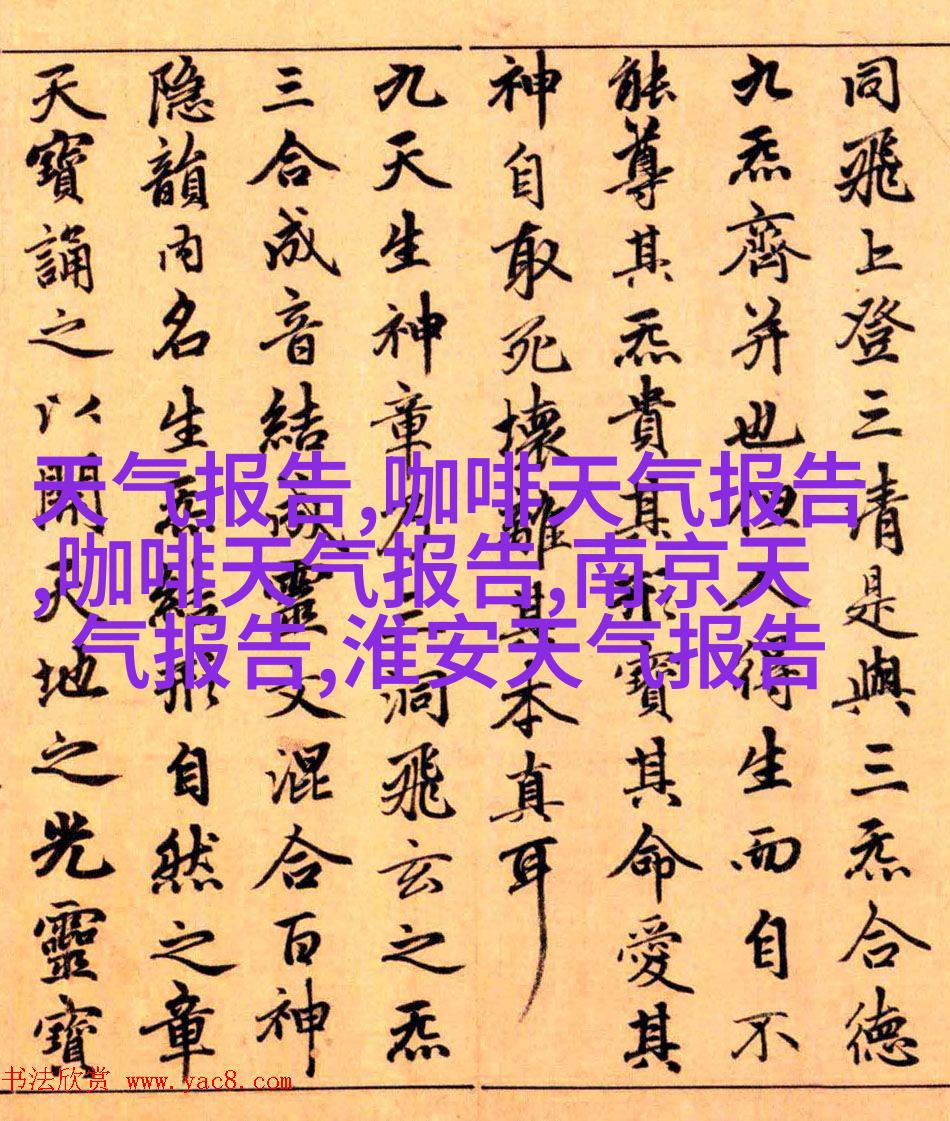 同飛上登三清是與三炁合德
九炁齊并也但人得生而自不
能尊其炁貴其形寶其命愛其
神自取死壞離其本真耳
九天生神章乃三洞飛玄之炁
三合成音結成靈文混合百神
隐韻内名生炁結形自然之章
天寶誦之以開天地之光靈寶
天气报告,咖啡天气报告
,咖啡天气报告,南京天
气报告,淮安天气报告
书法欣赏 www.yac8.com